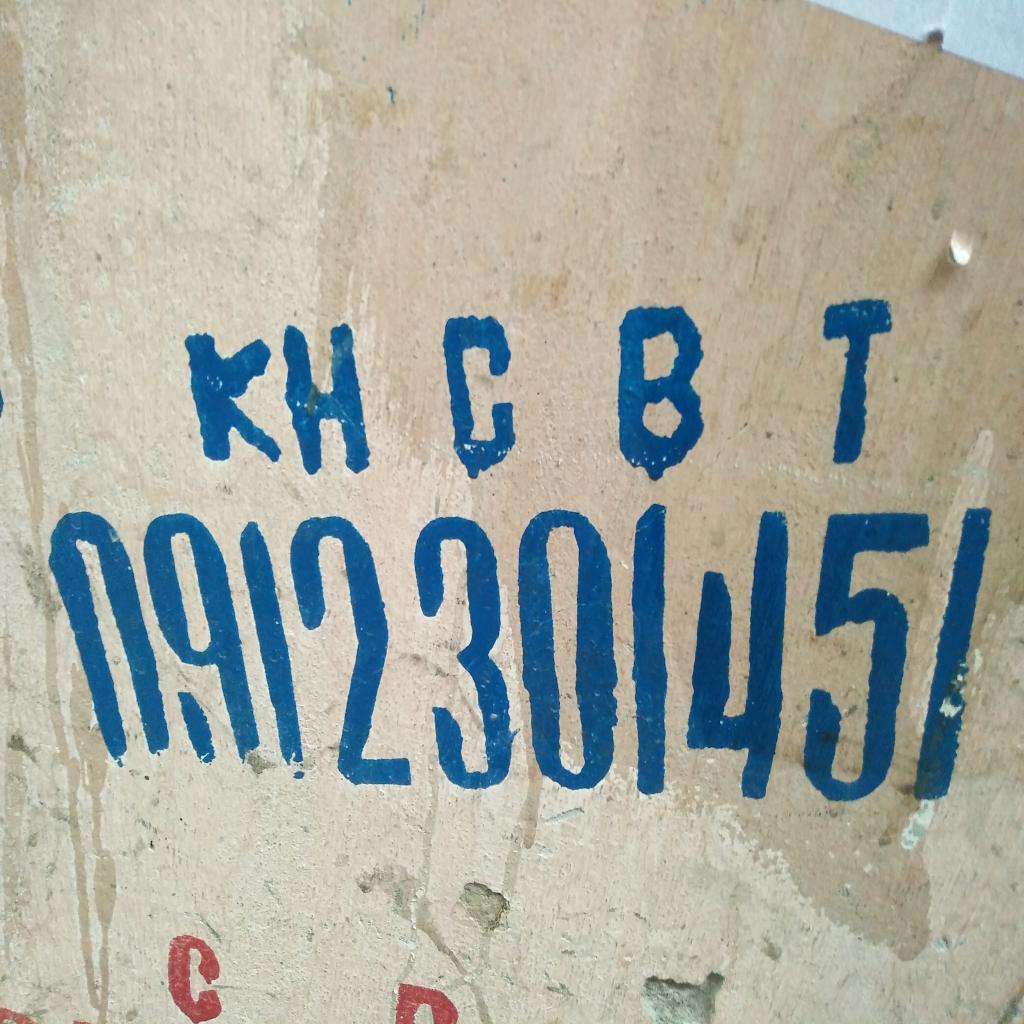 KH C B T
0912301451
C